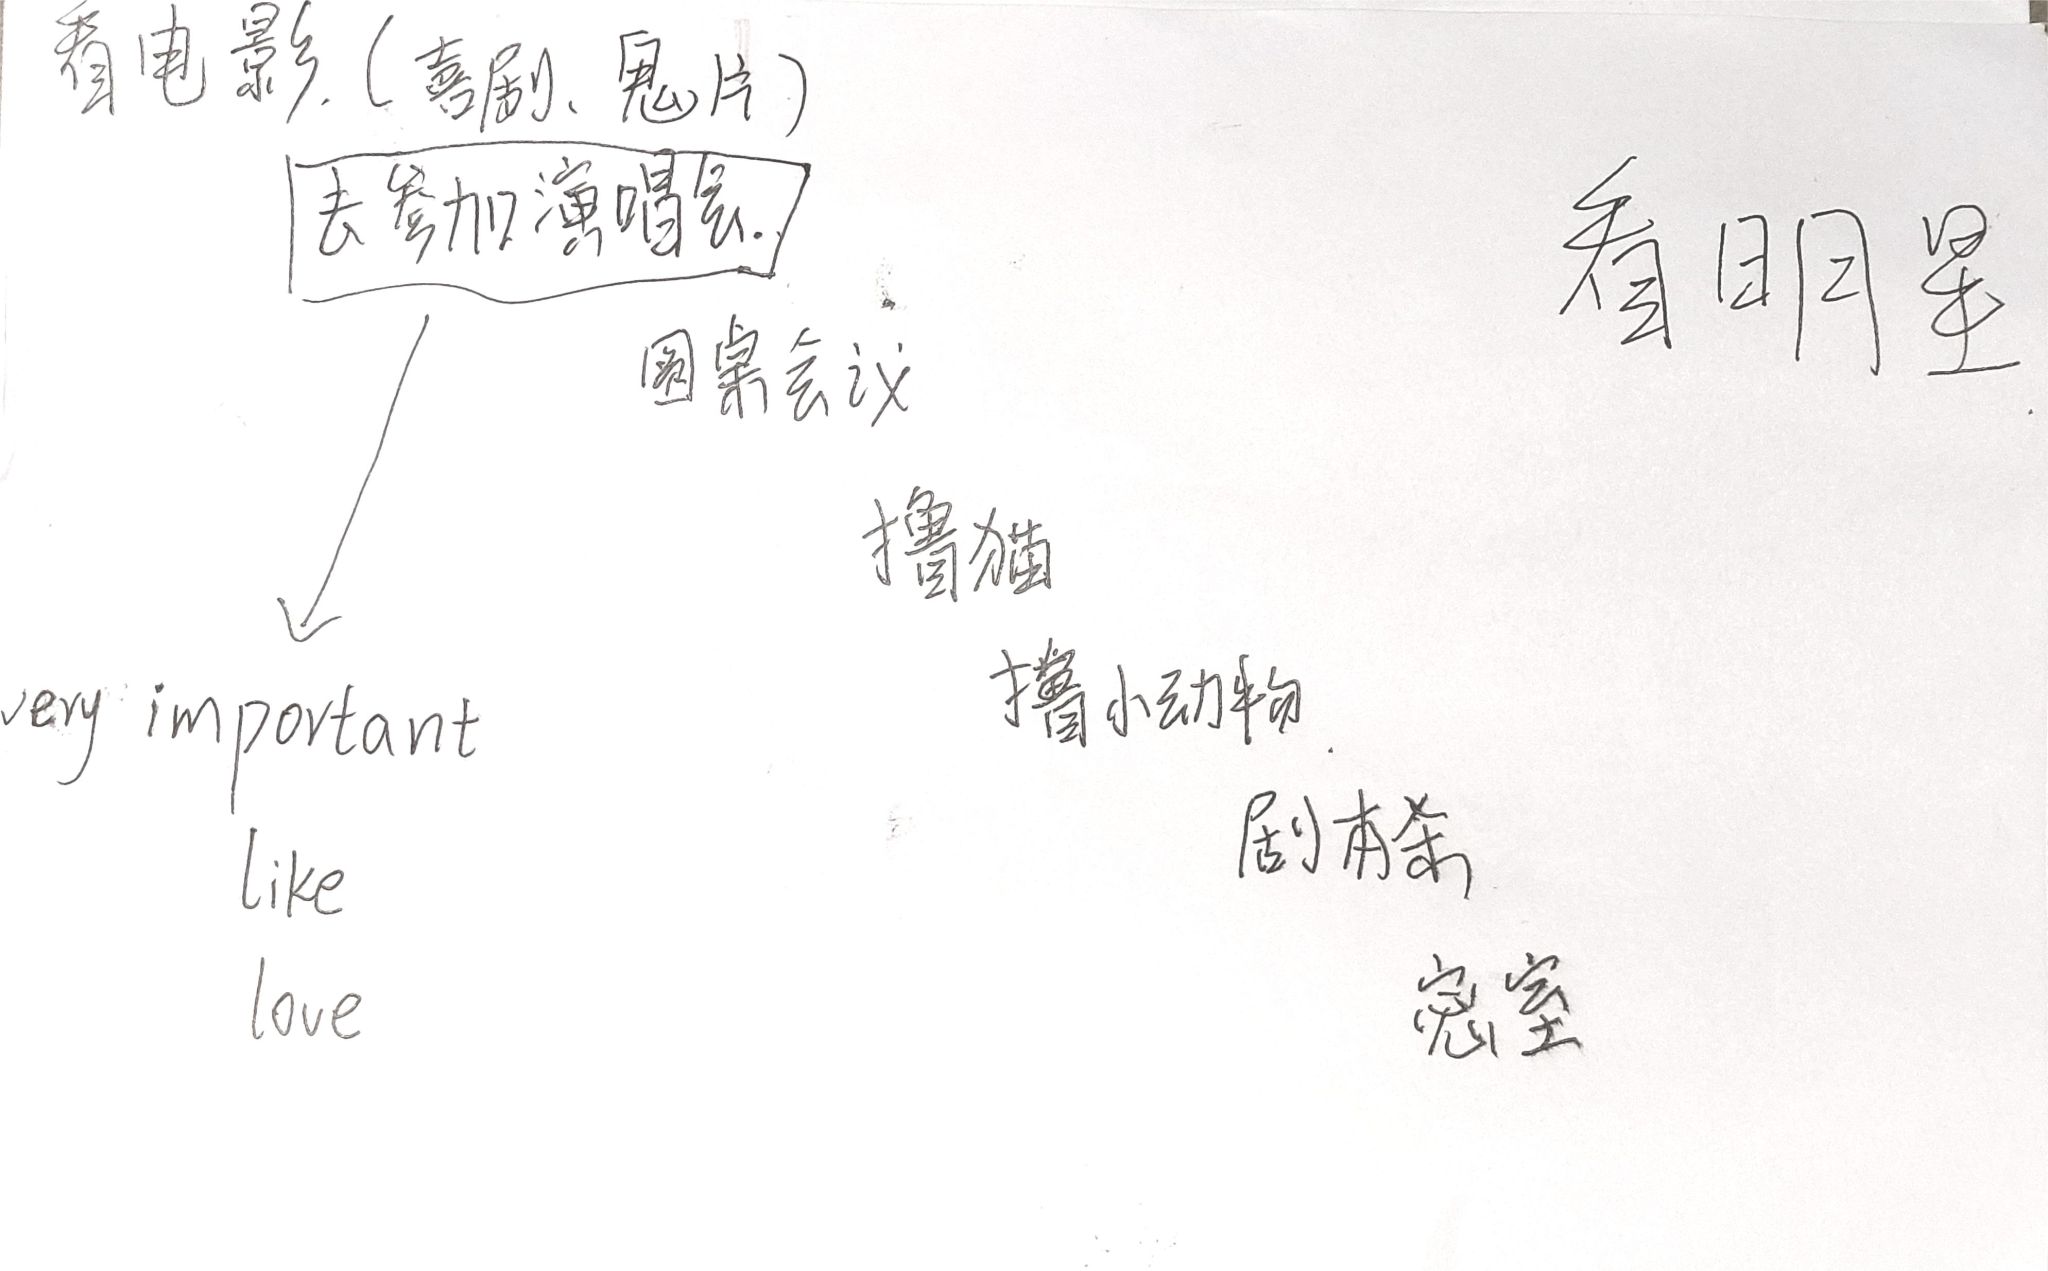 看电影.(喜剧、鬼片)
去参加演唱会.
看明星
圆桌会议
撸猫
撸小动物.
剧本杀
密室
very important
like
love